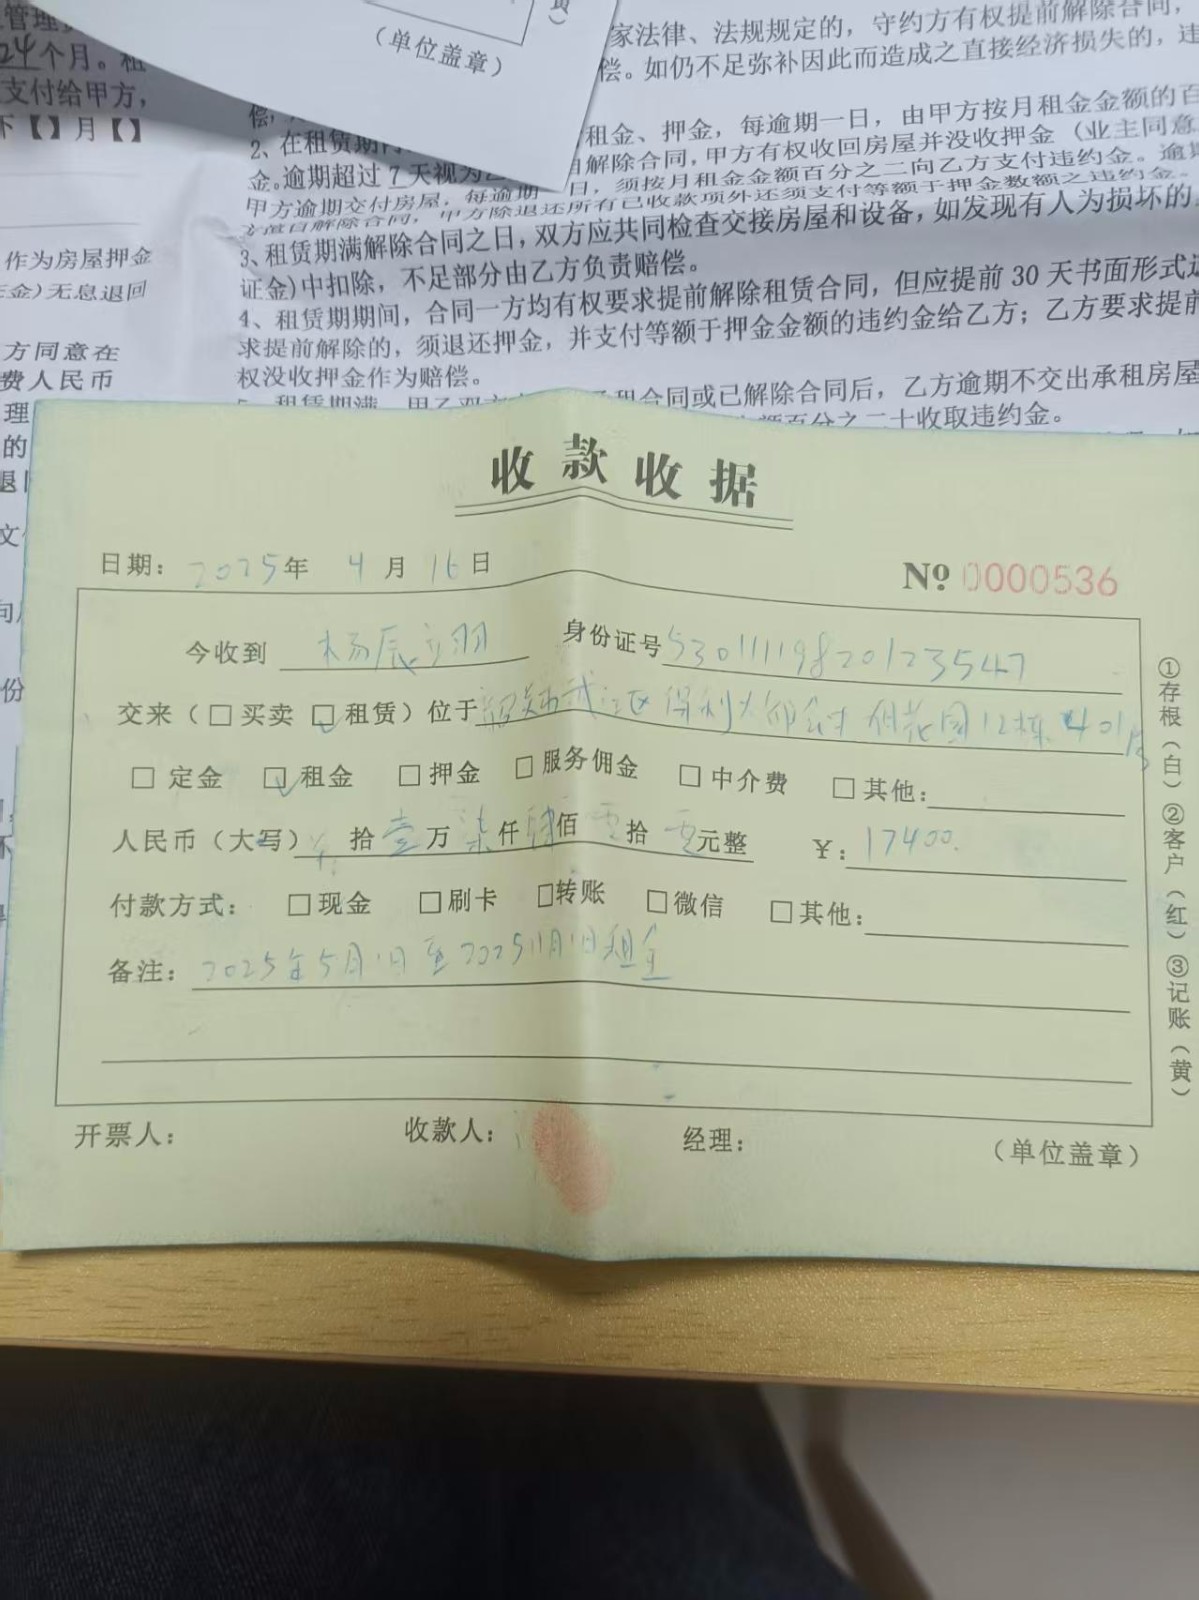 管理
24个月。租
支付给甲方，
下【】月【】
作为房屋押金
金)无息退回
方同意在
费人民币
理
的
退
文
向
份
(单位盖章)
家法律、法规规定的，守约方有权提前解除合同，
偿。如仍不足弥补因此而造成之直接经济损失的，违
偿，
2、在租赁期内 租金、押金，每逾期一日，由甲方按月租金金额的百
金。逾期超过7天视为 解除合同，甲方有权收回房屋并没收押金（业主同意
甲方逾期交付房屋，每逾期一日，须按月租金金额百分之二向乙方支付违约金。逾期
解除合同，甲方除退还所有已收款项外还须支付等额于押金数额之违约金。
3、租赁期满解除合同之日，双方应共同检查交接房屋和设备，如发现有人为损坏的
证金)中扣除，不足部分由乙方负责赔偿。
4、租赁期期间，合同一方均有权要求提前解除租赁合同，但应提前 30 天书面形式
求提前解除的，须退还押金，并支付等额于押金金额的违约金给乙方；乙方要求提前
权没收押金作为赔偿。
租赁期满 合同或已解除合同后，乙方逾期不交出承租房屋
额百分之二十收取违约金。
收款收据
日期：2025年 4月 16日
№ 0000536
今收到 杨辰羽 身份证号530111198201233547
交来（□买卖 ☑租赁）位于 武江区得利 花园12栋401房
□定金 ☑租金 □押金 □服务佣金 □中介费 □其他：
人民币（大写） 拾壹万柒仟肆佰零拾零元整 ￥：17400.
付款方式：□现金 □刷卡 □转账 □微信 □其他：
备注：2025年5月1日至2025 11月1日租金
开票人： 收款人： 经理： （单位盖章）
①存根（白）②客户（红）③记账（黄）